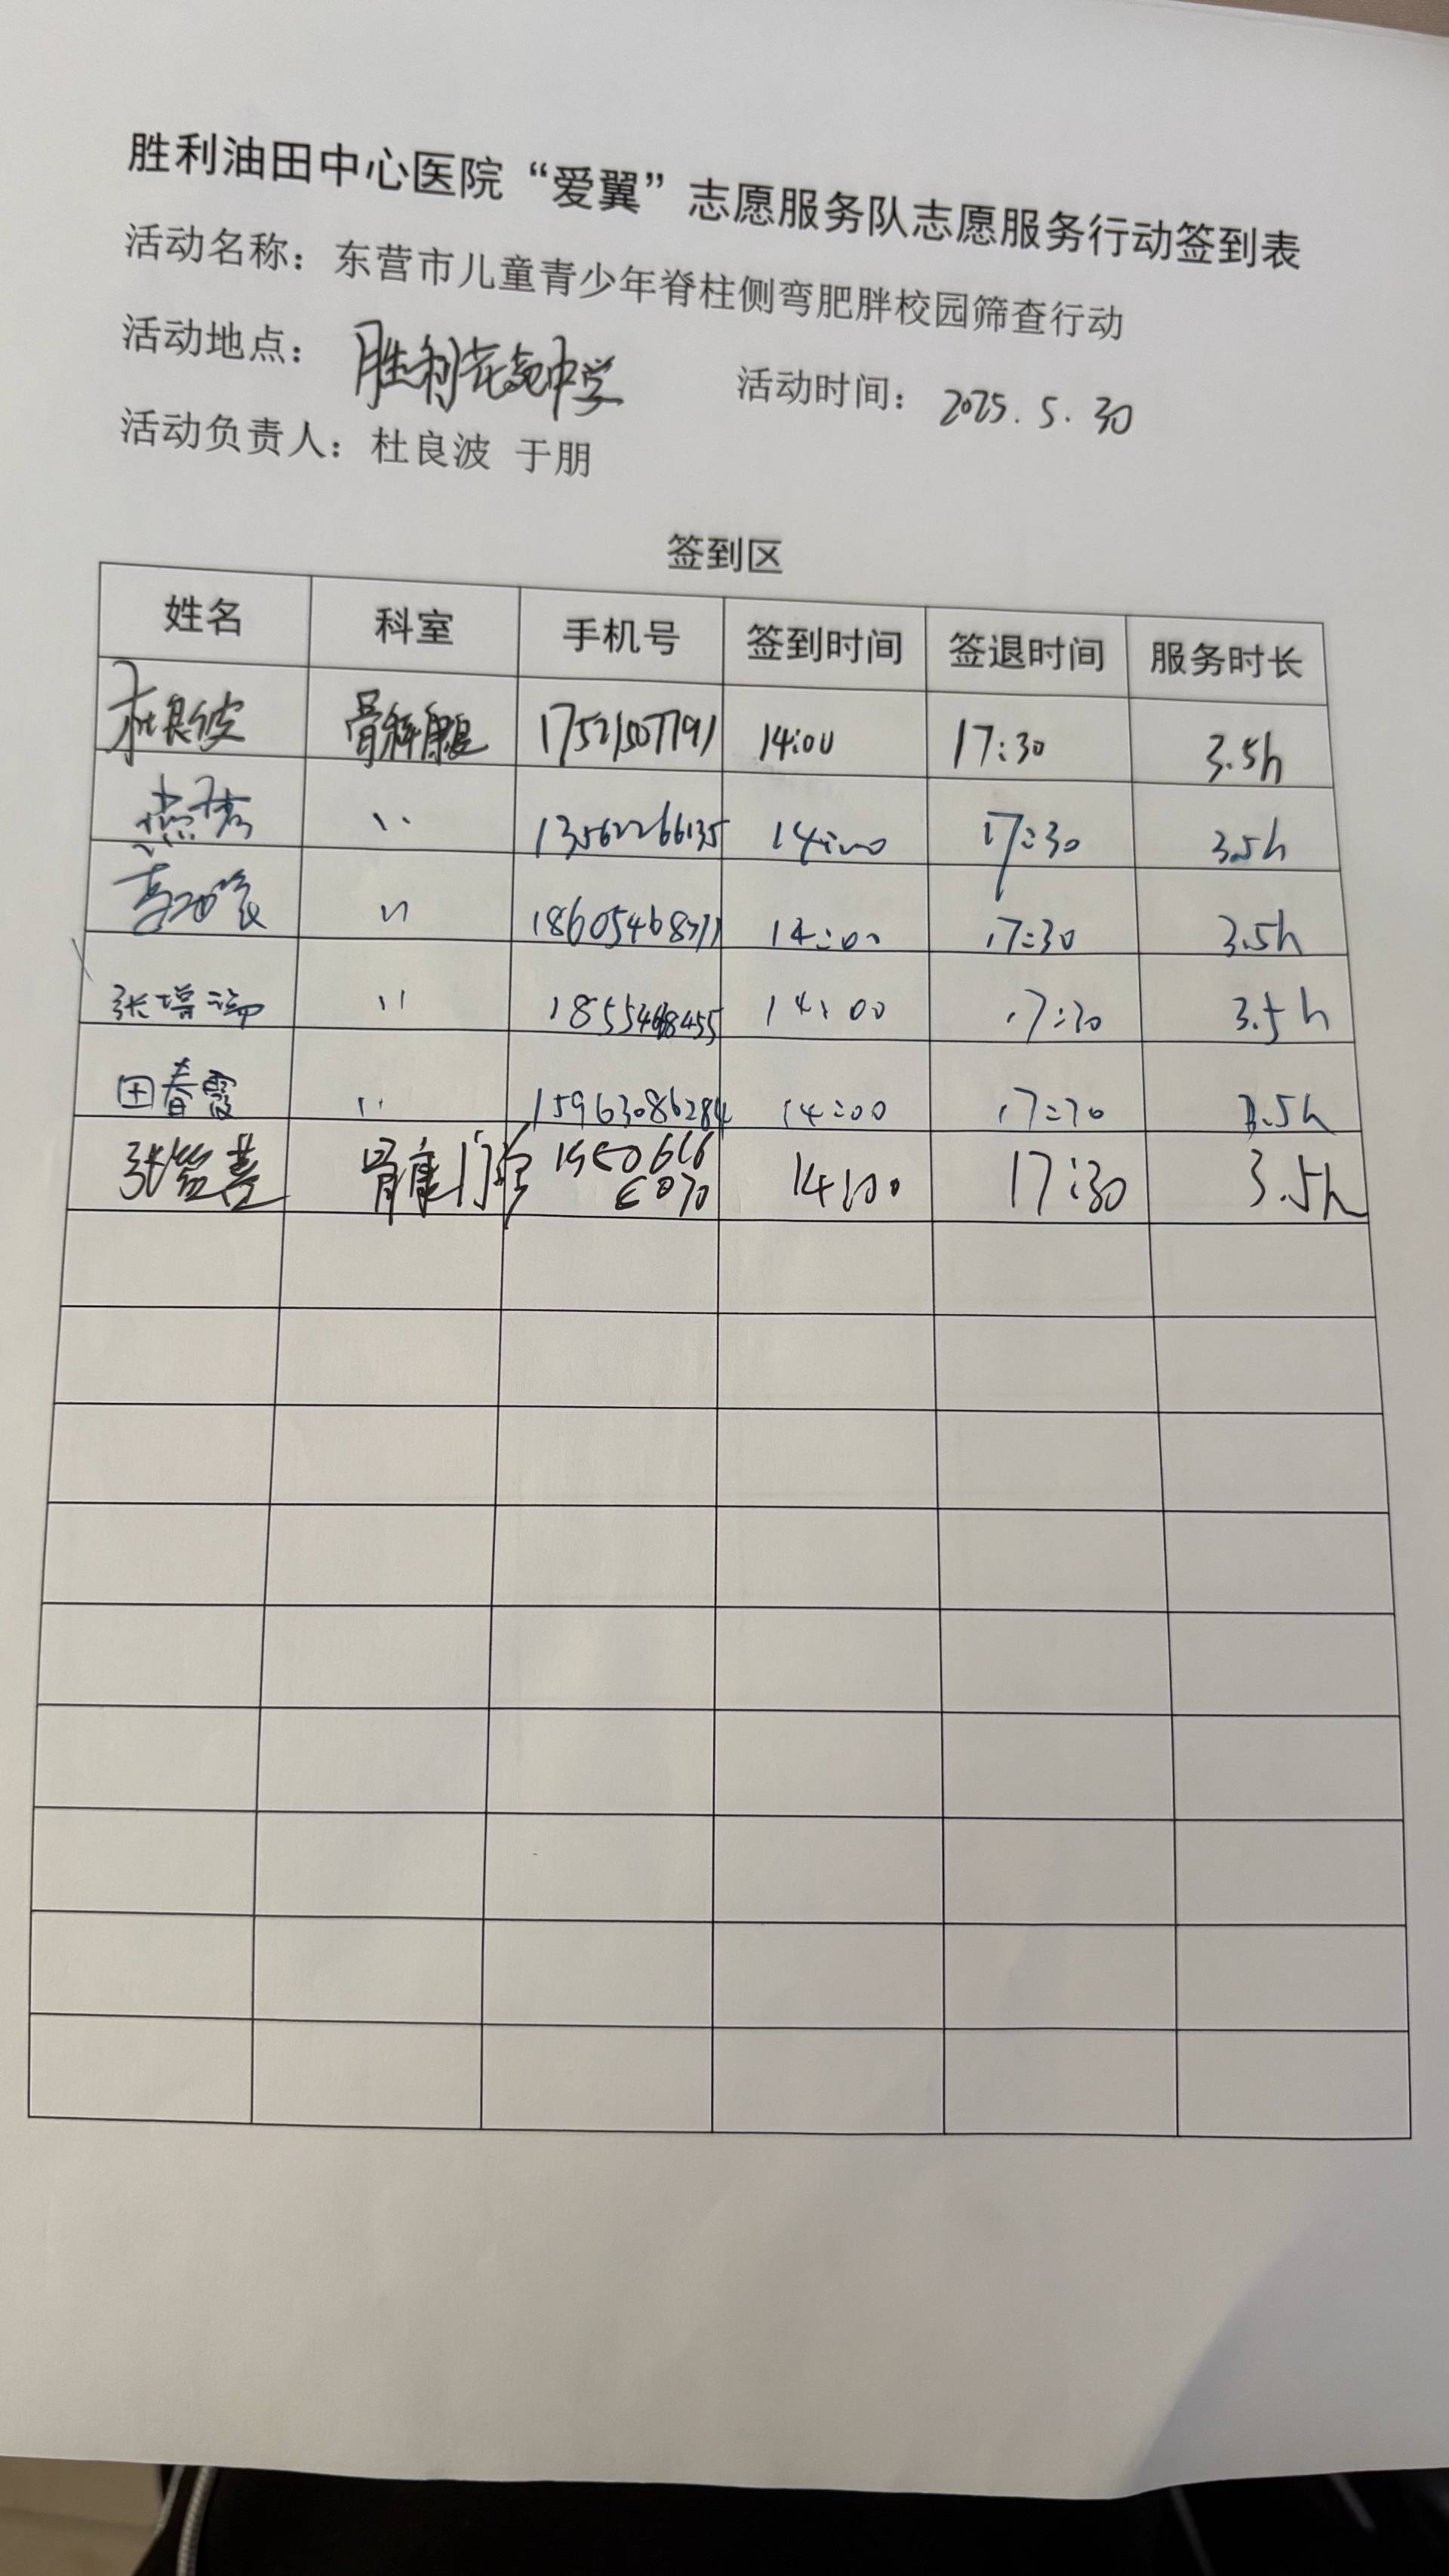 胜利油田中心医院“爱翼”志愿服务队志愿服务行动签到表
活动名称：东营市儿童青少年脊柱侧弯肥胖校园筛查行动
活动地点：胜利花苑中学 活动时间：2025.5.30
活动负责人：杜良波 于朋
签到区
姓名 科室 手机号 签到时间 签退时间 服务时长
杜良波 骨科康复 17521507791 14:00 17:30 3.5h
〃 13562266135 14:00 17:30 3.5h
〃 14:00 17:30 3.5h
张 〃 14:00 17:30 3.5h
田春霞 〃 15963086284 14:00 17:30 3.5h
张 骨康门诊 14:00 17:30 3.5h